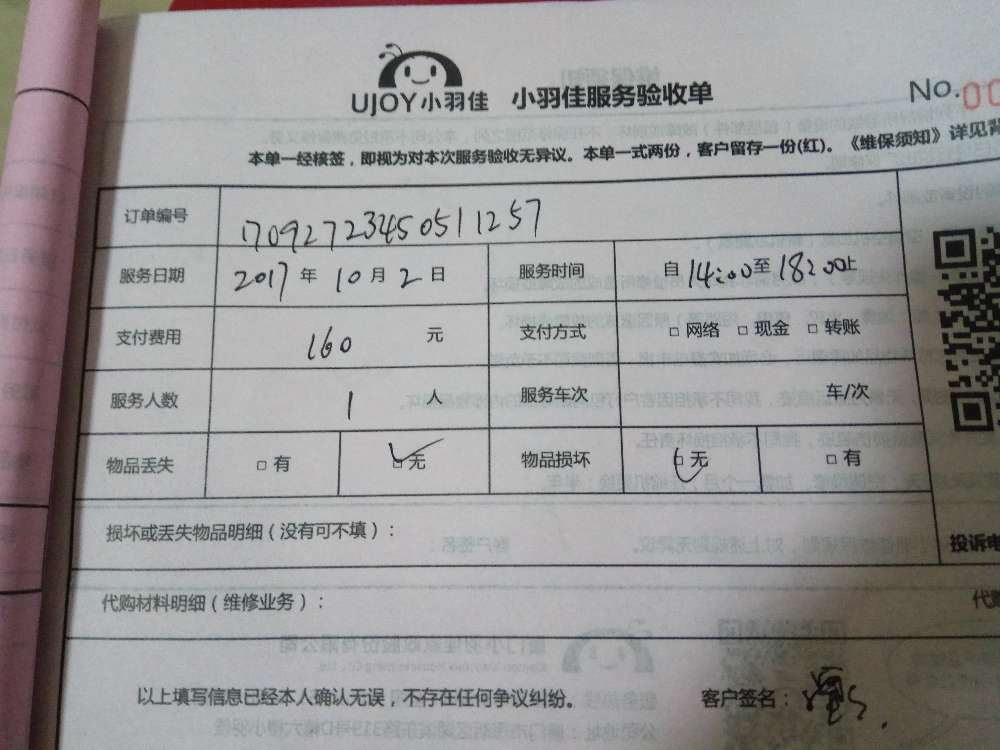 UJOY小羽佳 小羽佳服务验收单
No.00
本单一经核签，即视为对本次服务验收无异议。本单一式两份，客户留存一份(红)。《维保须知》详见背
订单编号 170927234505111257
服务日期 2017 年 10 月 2 日 服务时间 自 14:00 至 18:00 止
支付费用 160 元 支付方式 □ 网络 □ 现金 □ 转账
服务人数 1 人 服务车次 车/次
物品丢失 □ 有 □ 无 物品损坏 □ 无 □ 有
损坏或丢失物品明细（没有可不填）：
投诉电
代购材料明细（维修业务）：
代购
以上填写信息已经本人确认无误，不存在任何争议纠纷。 客户签名：